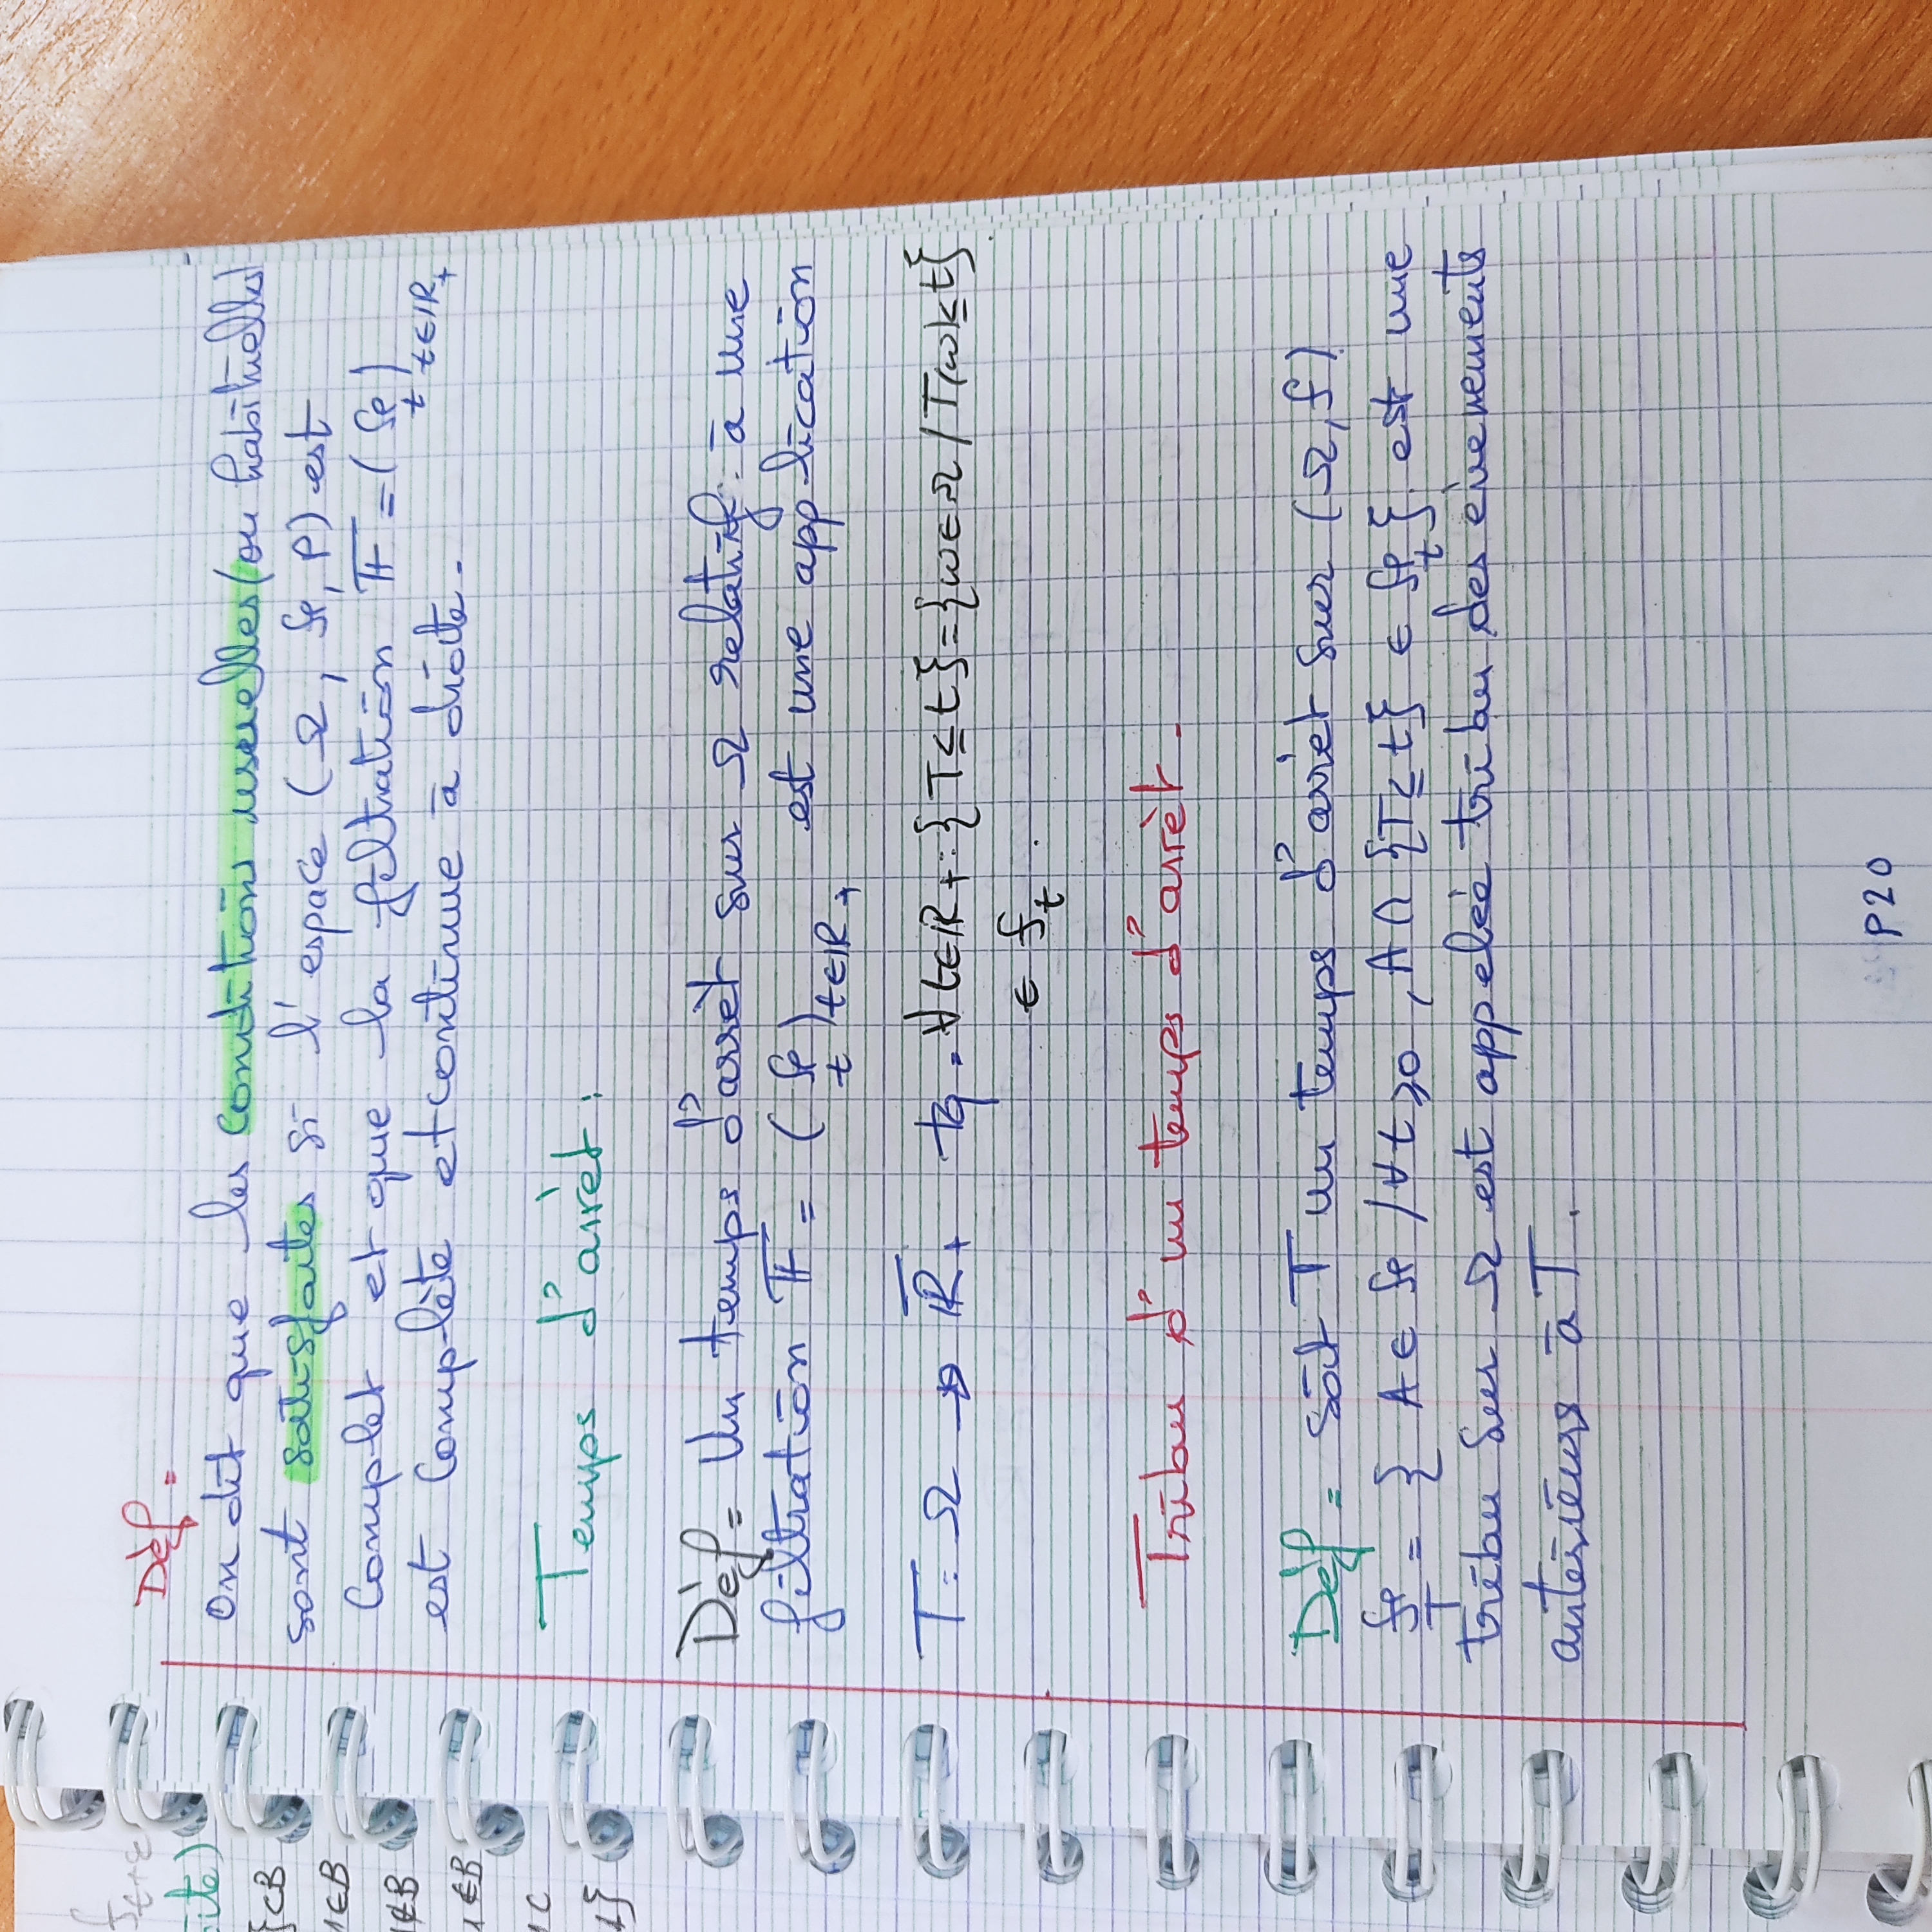 f
t+ε
ite)
}⊂B
1∈B
1∉B
1∉B
1C
1}
Dèf =
On dit que les conditions usuelles (ou habituelles)
sont satisfaites si l'espace (Ω, ℱ, P) est
complet et que la filtration 𝔽 = (ℱ_t)_{t∈ℝ+}
est complète et continue à droite.
Temps d'arrèt :
Dèf = Un temps d'arrèt sur Ω relatif à une
filtration 𝔽 = (ℱ_t)_{t∈ℝ+} est une application
T : Ω → ℝ̅+ tq . ∀t∈ℝ+ : {T ≤ t} = {ω ∈ Ω / T(ω) ≤ t}
∈ f_t .
Tribu d'un temps d'arrèt .
Dèf = soit T un temps d'arrèt sur (Ω, f)
ℱ_T = { A ∈ ℱ / ∀t ⩾ 0 , A ∩ {T ≤ t} ∈ ℱ_t } est une
tribu sur Ω est appeleé tribu des évenements
antérieurs à T .
P20